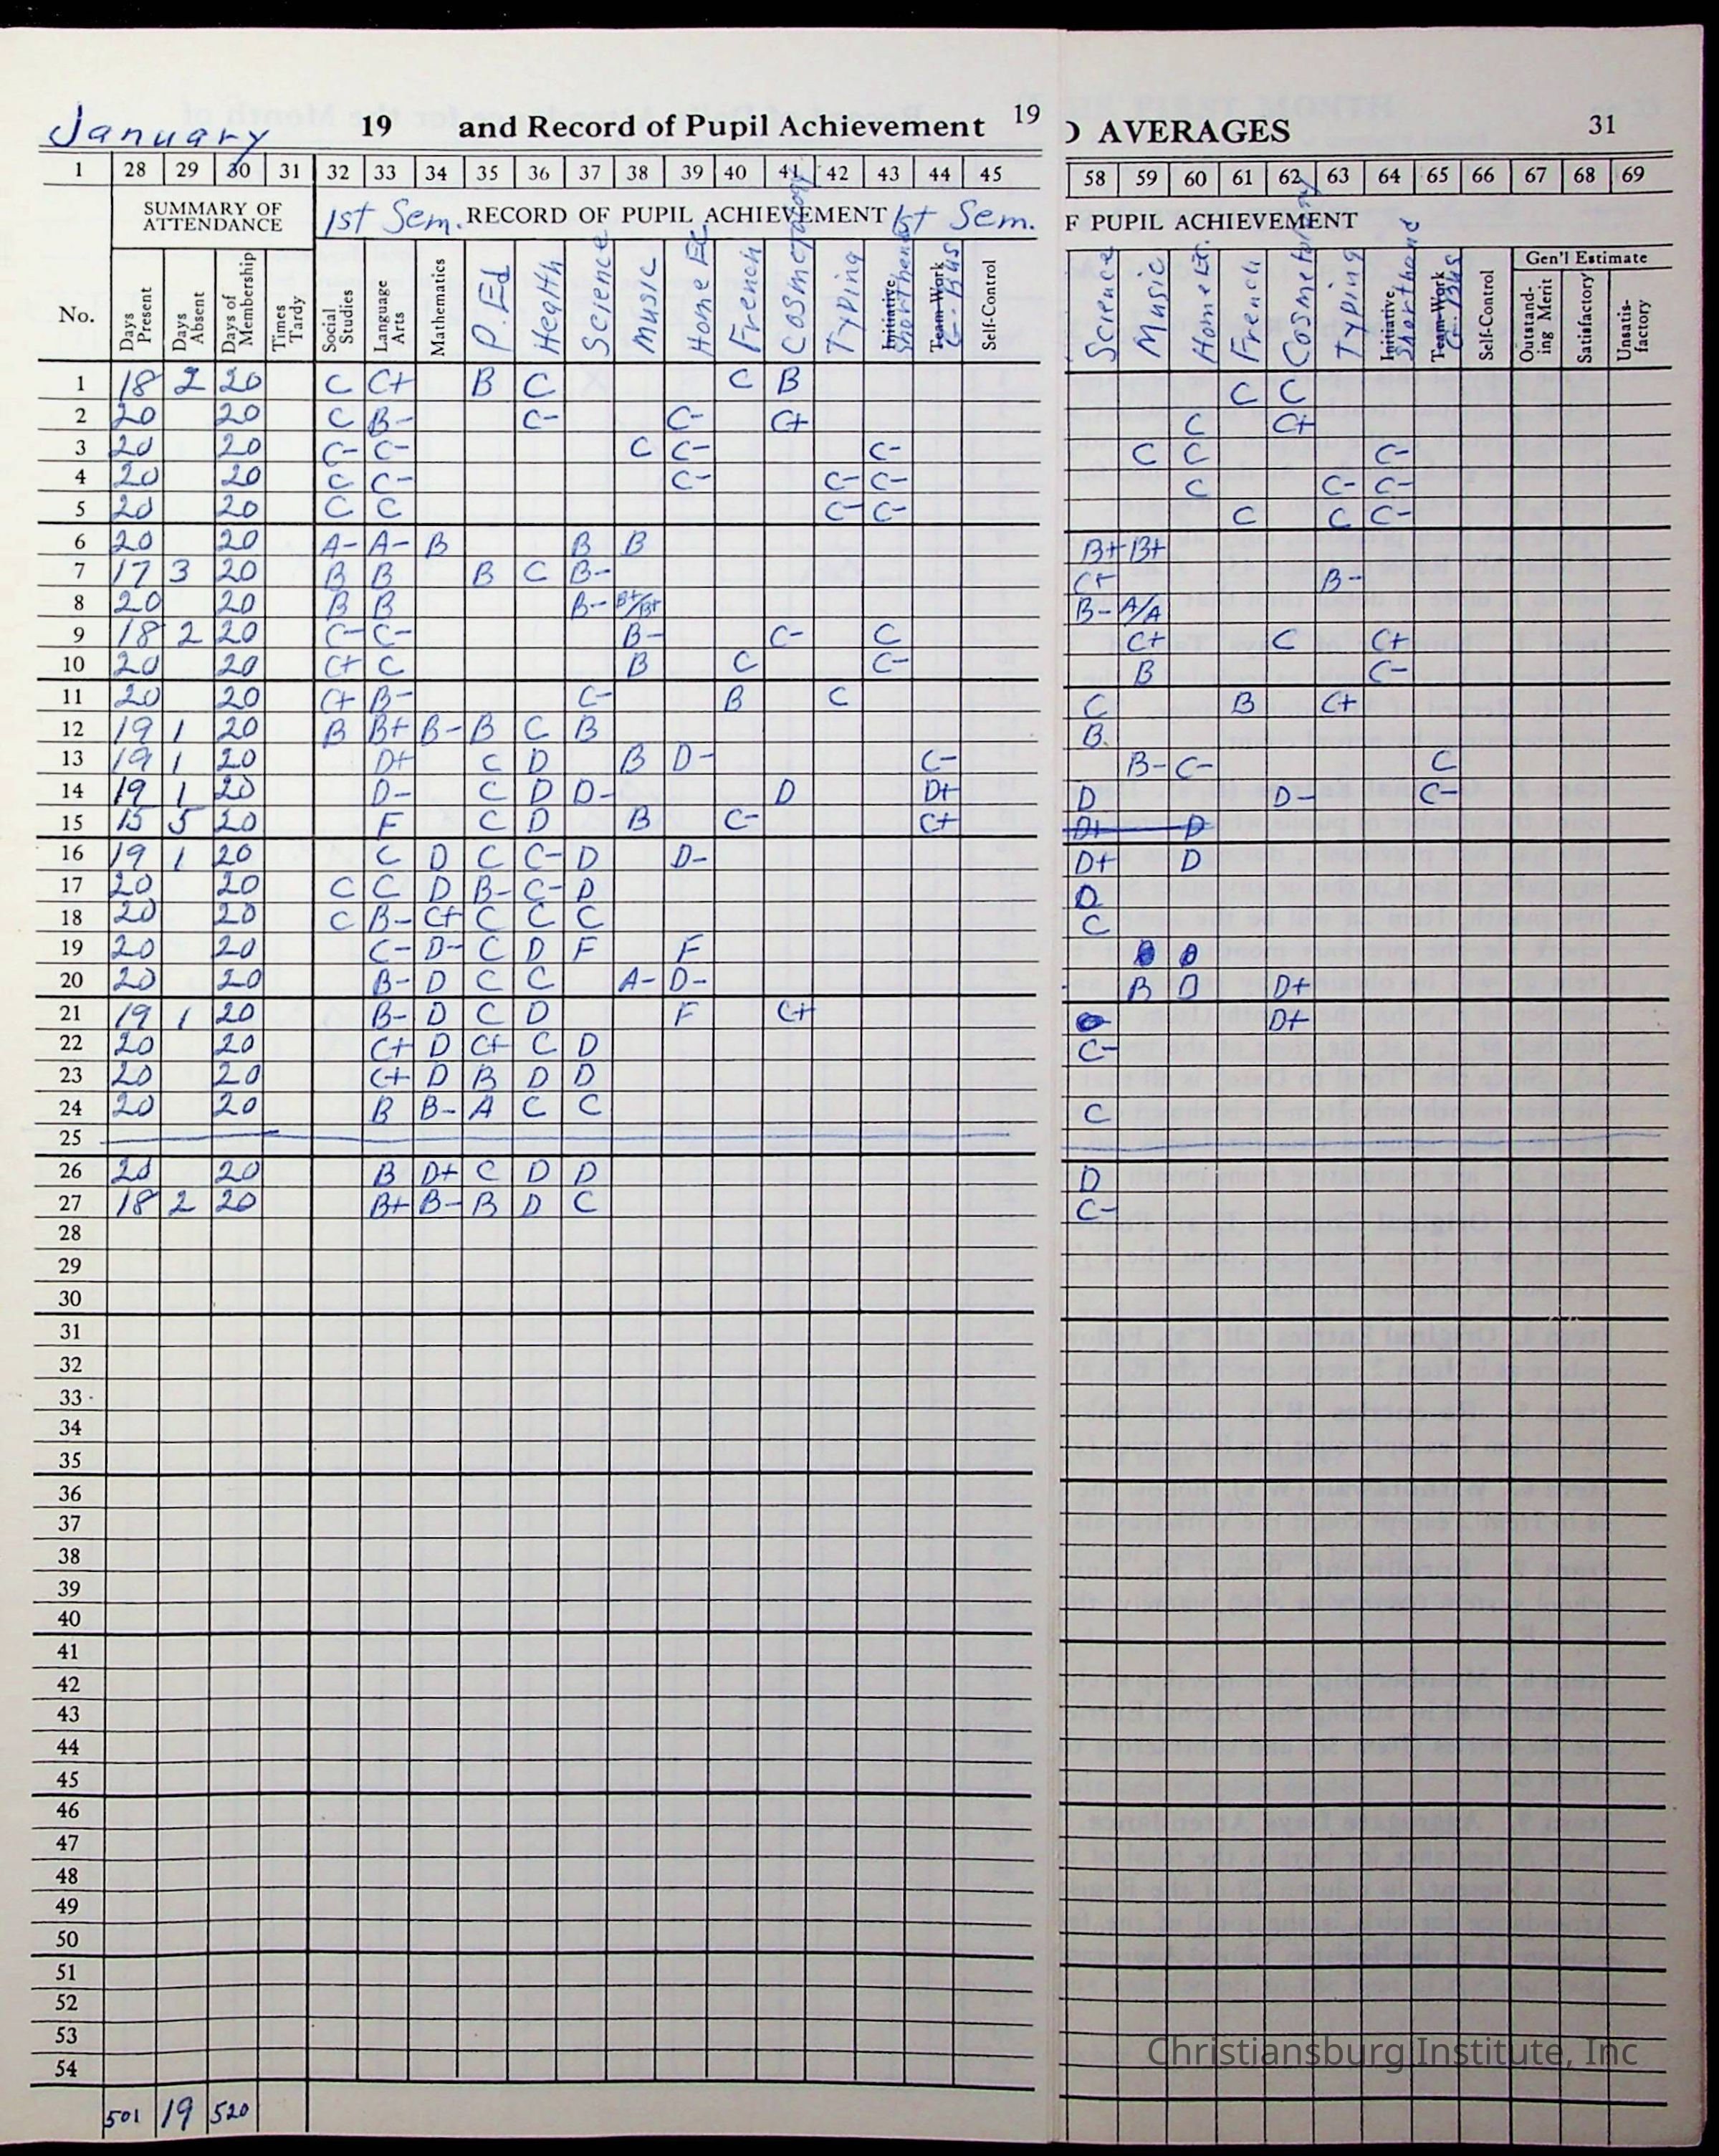 January 19 and Record of Pupil Achievement 19
1 28 29 30 31 32 33 34 35 36 37 38 39 40 41 42 43 44 45
SUMMARY OF ATTENDANCE 1st Sem. RECORD OF PUPIL ACHIEVEMENT 1st Sem.
No. Days Present Days Absent Days of Membership Times Tardy Social Studies Language Arts Mathematics P.Ed Health Science Music Home Ec French Cosmetology Typing Initiative Shorthand Team-Work G. Bus Self-Control
1 18 2 20 C C+ B C C B
2 20 20 C B- C- C- C+
3 20 20 C- C- C C- C-
4 20 20 C C- C- C- C-
5 20 20 C C C- C-
6 20 20 A- A- B B B
7 17 3 20 B B B C B-
8 20 20 B B B- B+/B+
9 18 2 20 C- C- B- C- C
10 20 20 C+ C B C C-
11 20 20 C+ B- C- B C
12 19 1 20 B B+ B- B C B
13 19 1 20 D+ C D B D- C-
14 19 1 20 D- C D D- D D+
15 15 5 20 F C D B C- C+
16 19 1 20 C D C C- D D-
17 20 20 C C D B- C- D
18 20 20 C B- C+ C C C
19 20 20 C- D- C D F F
20 20 20 B- D C C A- D-
21 19 1 20 B- D C D F C+
22 20 20 C+ D C+ C D
23 20 20 C+ D B D D
24 20 20 B B- A C C
25
26 20 20 B D+ C D D
27 18 2 20 B+ B- B D C
28
29
30
31
32
33
34
35
36
37
38
39
40
41
42
43
44
45
46
47
48
49
50
51
52
53
54
501 19 520
D AVERAGES 31
58 59 60 61 62 63 64 65 66 67 68 69
F PUPIL ACHIEVEMENT
Science Music Home Ec. French Cosmetology Typing Initiative Shorthand Team-Work G. Bus Self-Control Gen'l Estimate Outstanding Merit Satisfactory Unsatisfactory
C C
C C+
C C C-
C C- C-
C C C-
B+ B+
C+ B-
B- A/A
C+ C C+
B C-
C B C+
B
B- C- C
D D- C-
D+ D
D+ D
D
C
B D D+
D+
C-
C
D
C-
Christiansburg Institute, Inc